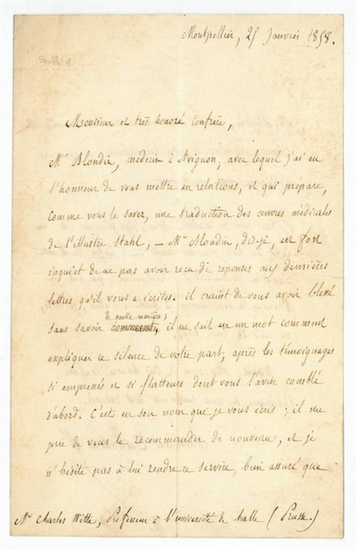 Montpellier, 25 Janvier 1858.
Monsieur et très honoré confrère,
Mr Blondin, médecin à Avignon, avec lequel j'ai eu
l'honneur de vous mettre en relations, et qui prépare,
comme vous le savez, une traduction des œuvres médicales
de l'illustre Stahl, — Mr Blondin, dis-je, est fort
inquiet de ne pas avoir reçu de réponses aux dernières
lettres qu'il vous a écrites. il craint de vous avoir blessé
de quelle manière;
sans savoir comment, il ne sait en un mot comment
expliquer ce silence de votre part, après les témoignages
si empressés et si flatteurs dont vous l'aviez comblé
d'abord. C'est en son nom que je vous écris; il me
prie de vous le recommander de nouveau, et je
n'hésite pas à lui rendre ce service, bien assuré que
Mr Charles Witte, Professeur à l'université de halle (Prusse.)